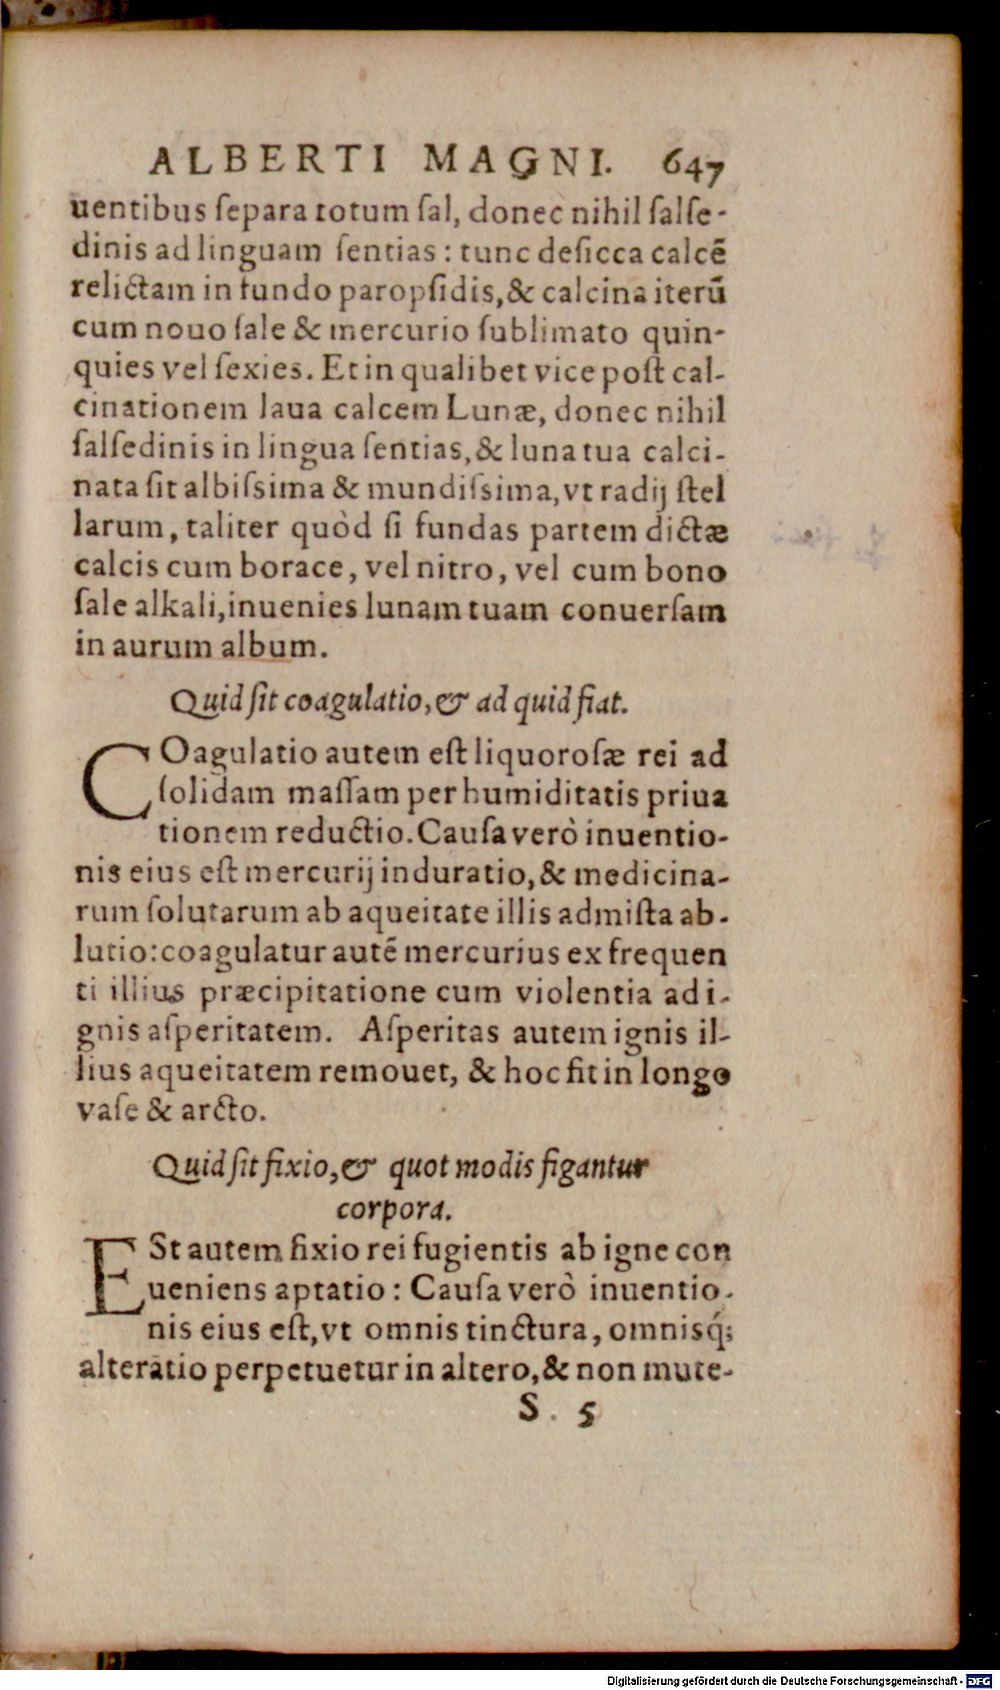 ALBERTI MAGNI. 647
uentibus ſepara totum ſal, donec nihil ſalſe-
dinis ad linguam ſentias : tunc deſicca calcē
relictam in fundo paropſidis, & calcina iterū
cum nouo ſale & mercurio ſublimato quin-
quies vel ſexies. Et in qualibet vice poſt cal-
cinationem laua calcem Lunæ, donec nihil
ſalſedinis in lingua ſentias, & luna tua calci-
nata ſit albiſsima & mundiſsima, vt radij ſtel
larum, taliter quòd ſi fundas partem dictæ
calcis cum borace, vel nitro, vel cum bono
ſale alkali, inuenies lunam tuam conuerſam
in aurum album.
Quid ſit coagulatio, & ad quid fiat.
COagulatio autem eſt liquoroſæ rei ad
ſolidam maſſam per humiditatis priua
tionem reductio. Cauſa verò inuentio-
nis eius eſt mercurij induratio, & medicina-
rum ſolutarum ab aqueitate illis admiſta ab-
lutio: coagulatur autē mercurius ex frequen
ti illius præcipitatione cum violentia ad i-
gnis aſperitatem. Aſperitas autem ignis il-
lius aqueitatem remouet, & hoc fit in longo
vaſe & arcto.
Quid ſit fixio, & quot modis figantur
corpora.
ESt autem fixio rei fugientis ab igne con
ueniens aptatio : Cauſa verò inuentio-
nis eius eſt, vt omnis tinctura, omnisq́;
alteratio perpetuetur in altero, & non mute-
S. 5
Digitalisierung gefördert durch die Deutsche Forschungsgemeinschaft - DFG